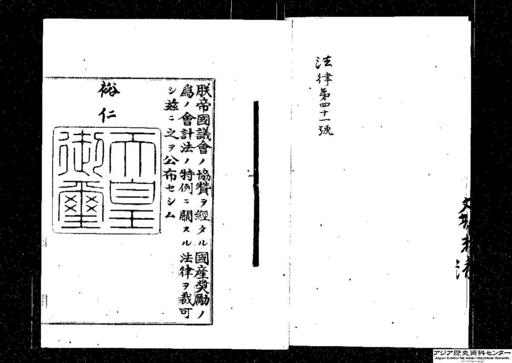 法律第四十一號
朕帝國議會ノ協贊ヲ經タル國產奬勵ノ
爲ノ會計法ノ特例ニ關スル法律ヲ裁可
シ茲ニ之ヲ公布セシム
裕仁
天皇
御璽
アジア歴史資料センター
Japan Center for Asian Historical Records